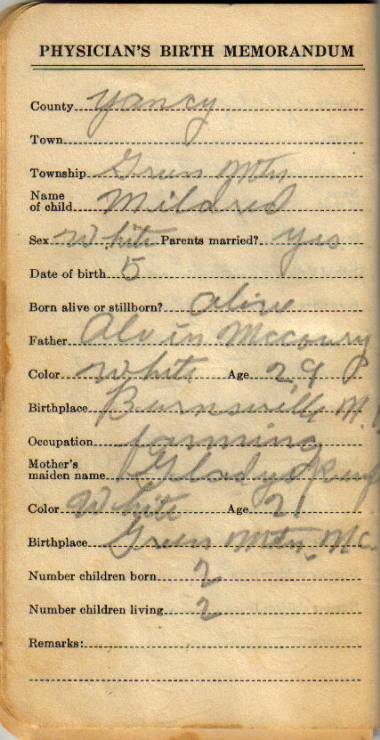 PHYSICIAN'S BIRTH MEMORANDUM
County Yancy
Town
Township Green Mtn
Name of child Mildred
Sex White Parents married? yes
Date of birth 5
Born alive or stillborn? alive
Father Alvin Mccoury
Color White Age 29
Birthplace Burnsville N.
Occupation farming
Mother's maiden name Gladys
Color White Age 21
Birthplace Green Mtn, N.C.
Number children born 2
Number children living 2
Remarks: